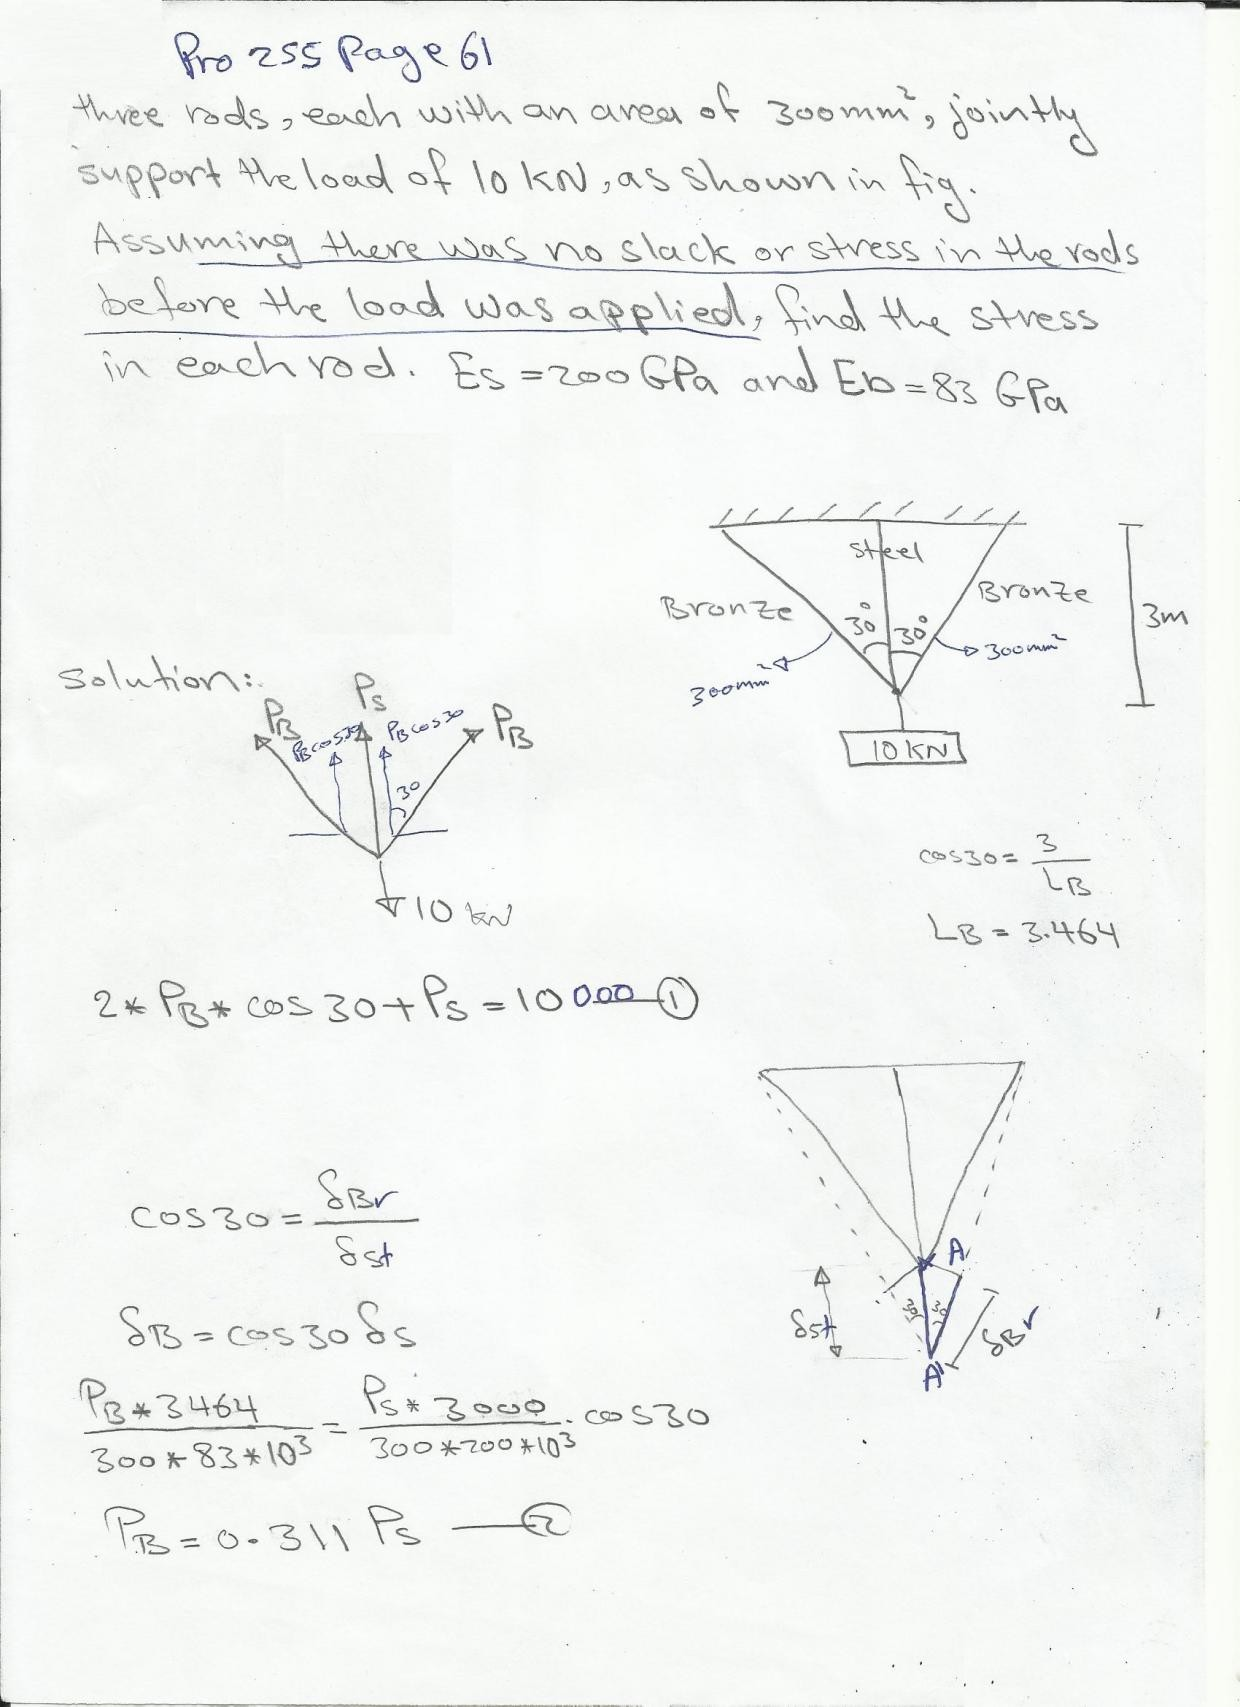 Pro 255 Page 61
three rods, each with an area of 300mm², jointly
support the load of 10 KN, as shown in fig.
Assuming there was no slack or stress in the rods
before the load was applied, find the stress
in each rod. Es = 200 GPa and Eb = 83 GPa
steel
Bronze
Bronze
30°
30°
3m
300mm²
300mm²
10 KN
solution:
PB
PBcos30
Ps
PBcos30
PB
30
10 kN
cos30 = 3/LB
LB = 3.464
2* PB* cos 30 + Ps = 10000 — ①
cos30 = δBr/δst
A
30
30
δst
δBr
A'
δB = cos30 δs
PB * 3464 / 300 * 83 * 10³ = Ps * 3000 / 300 * 200 * 10³ . cos30
PB = 0.311 Ps — ②